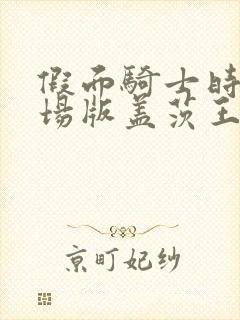 假面騎士時
場版蓋茨王
京町妃紗